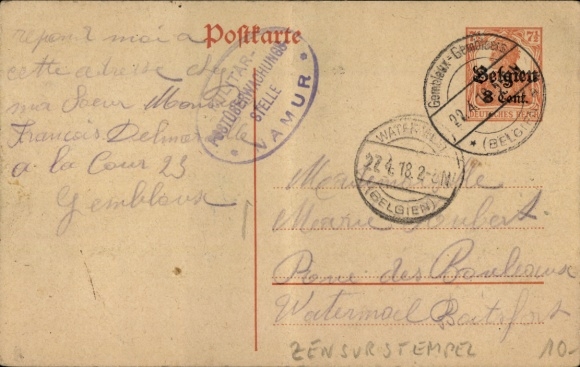 repond moi a
cette adresse chez
ma Soeur Monsieur
François
a la Cour 23
Gembloux
Postkarte
MILITÄR
POSTÜBERWACHUNGS
STELLE
* NAMUR *
7½
Belgien
8 Cent.
DEUTSCHES REICH
Gembloux-Gembloers
22.4.
* (BELGIEN)
WATERMAEL
22.4.18.2-3N
(BELGIEN)
Mademoiselle
Marie Joubert
Rue des Bouleaux
Watermael Boitsfort
ZENSURSTEMPEL 10.-